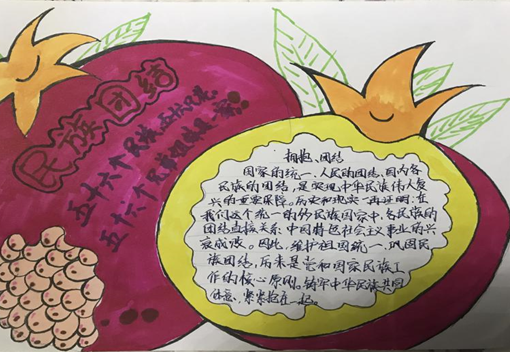 民族团结
五十六个民族五十六枝花
五十六个兄弟姐妹是一家
拥抱、团结
国家的统一、人民的团结、国内各
民族的团结，是实现中华民族伟大复
兴的重要保障。历史和现实一再证明：在
我们这个统一的多民族国家中，各民族的
团结直接关系中国特色社会主义事业的兴
衰成败。因此，维护祖国统一、巩固民
族团结，历来是党和国家民族工
作的核心原则。铸牢中华民族共同
体意，紧紧抱在一起。